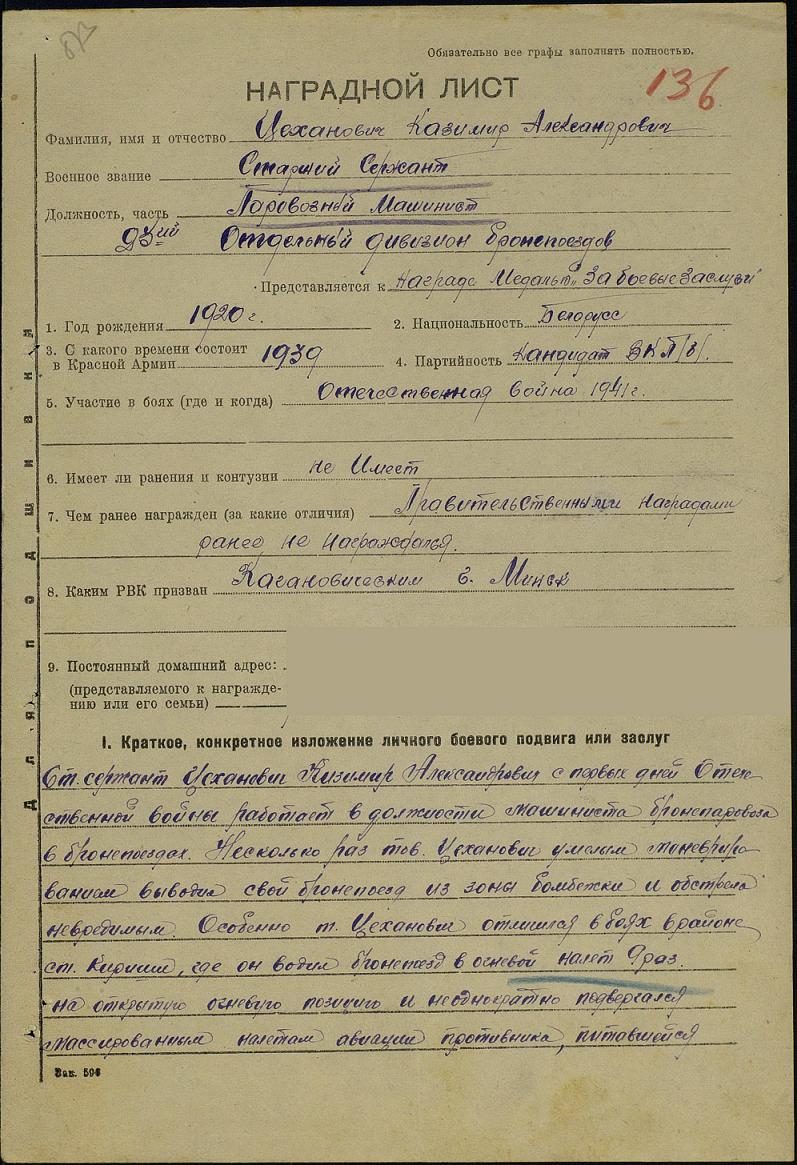 Обязательно все графы заполнять полностью.
136
НАГРАДНОЙ ЛИСТ
Фамилия, имя и отчество Цеханович Казимир Александрович
Военное звание Старший Сержант
Должность, часть Паровозный Машинист
23ий Отдельный дивизион бронепоездов
Представляется к награде Медалью „За боевые заслуги"
1. Год рождения 1920 г. 2. Национальность Белорусс
3. С какого времени состоит в Красной Армии 1939 4. Партийность Кандидат ВКП/б/.
5. Участие в боях (где и когда) Отечественная война 1941 г.
6. Имеет ли ранения и контузии не Имеет
7. Чем ранее награжден (за какие отличия) Правительственными наградами
ранее не награждался.
8. Каким РВК призван Кагановическим г. Минск
9. Постоянный домашний адрес:
(представляемого к награжде-
нию или его семьи)
I. Краткое, конкретное изложение личного боевого подвига или заслуг
Ст. сержант Цеханович Кизимир Александрович с первых дней Отече-
ственной войны работает в должности машиниста бронепаровоза
в бронепоездах. Несколько раз тов. Цеханович умелым маневриро-
ванием выводил свой бронепоезд из зоны бомбежки и обстрела
невредимым. Особенно т. Цеханович отличился в боях в районе
ст. Кириши, где он водил бронепоезд в огневой налет 9 раз.
на открытую огневую позицию и неоднократно подвергался
массированным налетам авиации противника, пытавшейся
Зак. 596
Для подшивки